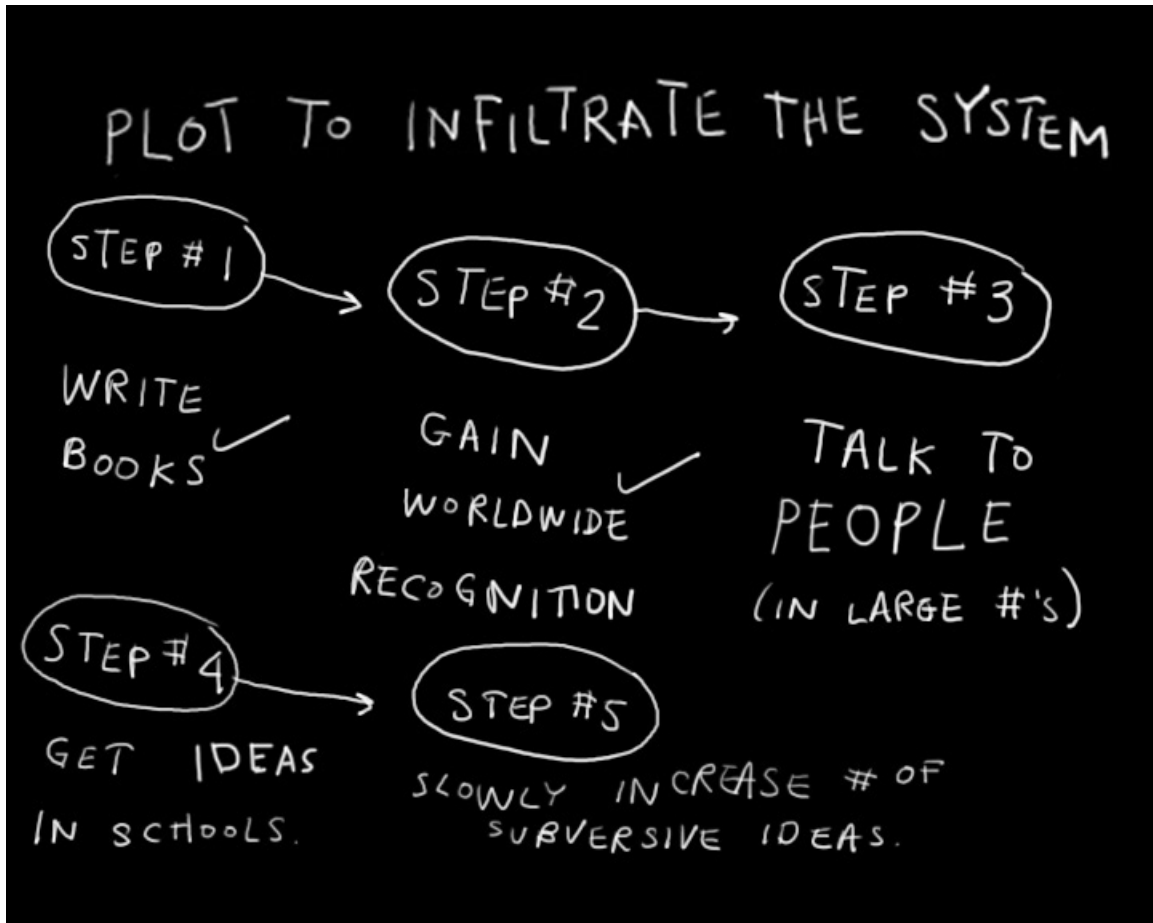 PLOT TO INFILTRATE THE SYSTEM
STEP #1
WRITE
BOOKS
STEP #2
GAIN
WORLDWIDE
RECOGNITION
STEP #3
TALK TO
PEOPLE
(IN LARGE #'s)
STEP #4
GET IDEAS
IN SCHOOLS.
STEP #5
SLOWLY INCREASE # OF
SUBVERSIVE IDEAS.